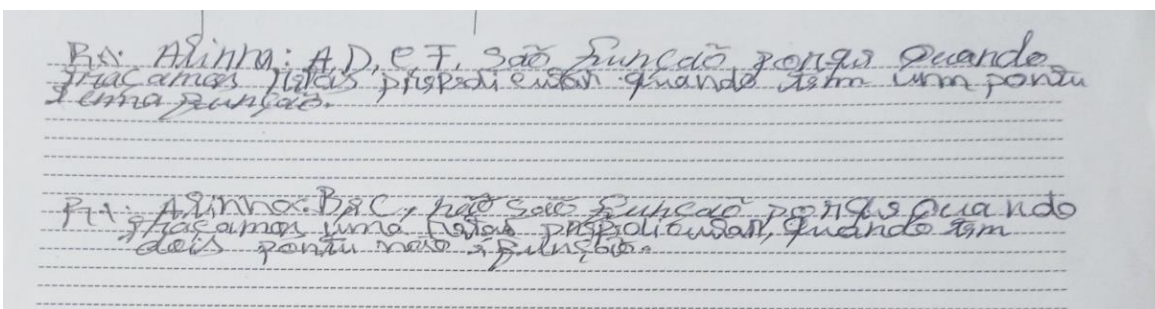 R.: Alinha: A, D, E, F, são função porque quando
traçamos retas prependicular quando tem um pontu
é uma função.
R.: Alinha: B e C, não são função porque quando
traçamos uma retas prependicular, quando tem
dois pontu não é função.